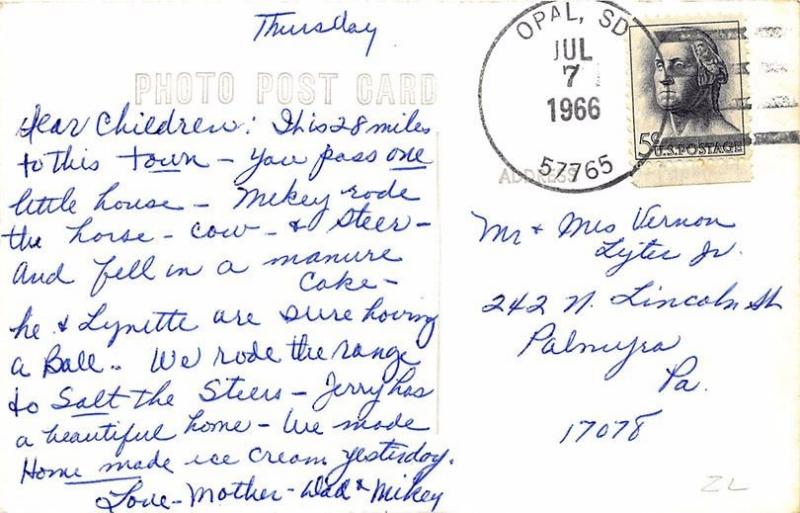 Thursday
PHOTO POST CARD
Dear Children: This 28 miles
to this town - you pass one
little house - Mikey rode
the horse - cow - & steer -
And fell in a manure
Cake -
he & Lynette are sure having
a Ball.. We rode the range
to Salt the Steers - Jerry has
a beautiful home - We made
Home made ice cream yesterday.
Love - Mother - Dad & Mikey
OPAL, SD
JUL
7
1966
57765
5¢ U.S. POSTAGE
ADDRESS
Mr & Mrs Vernon
Lyter Jr.
242 N. Lincoln St
Palmyra
Pa.
17078
ZL